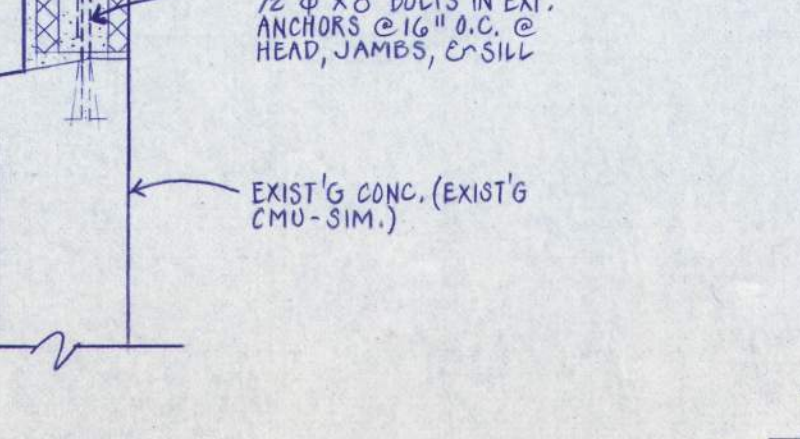 BOLTS IN EXP.
ANCHORS @ 16" O.C. @
HEAD, JAMBS, & SILL
EXIST'G CONC. (EXIST'G
CMU-SIM.)